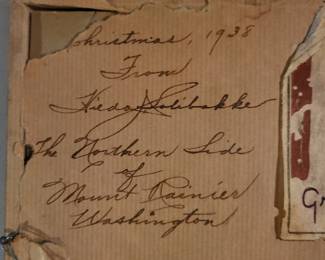 Christmas, 1938
From
Solibakke
The Northern Side
of
Mount Rainier
Washington
G